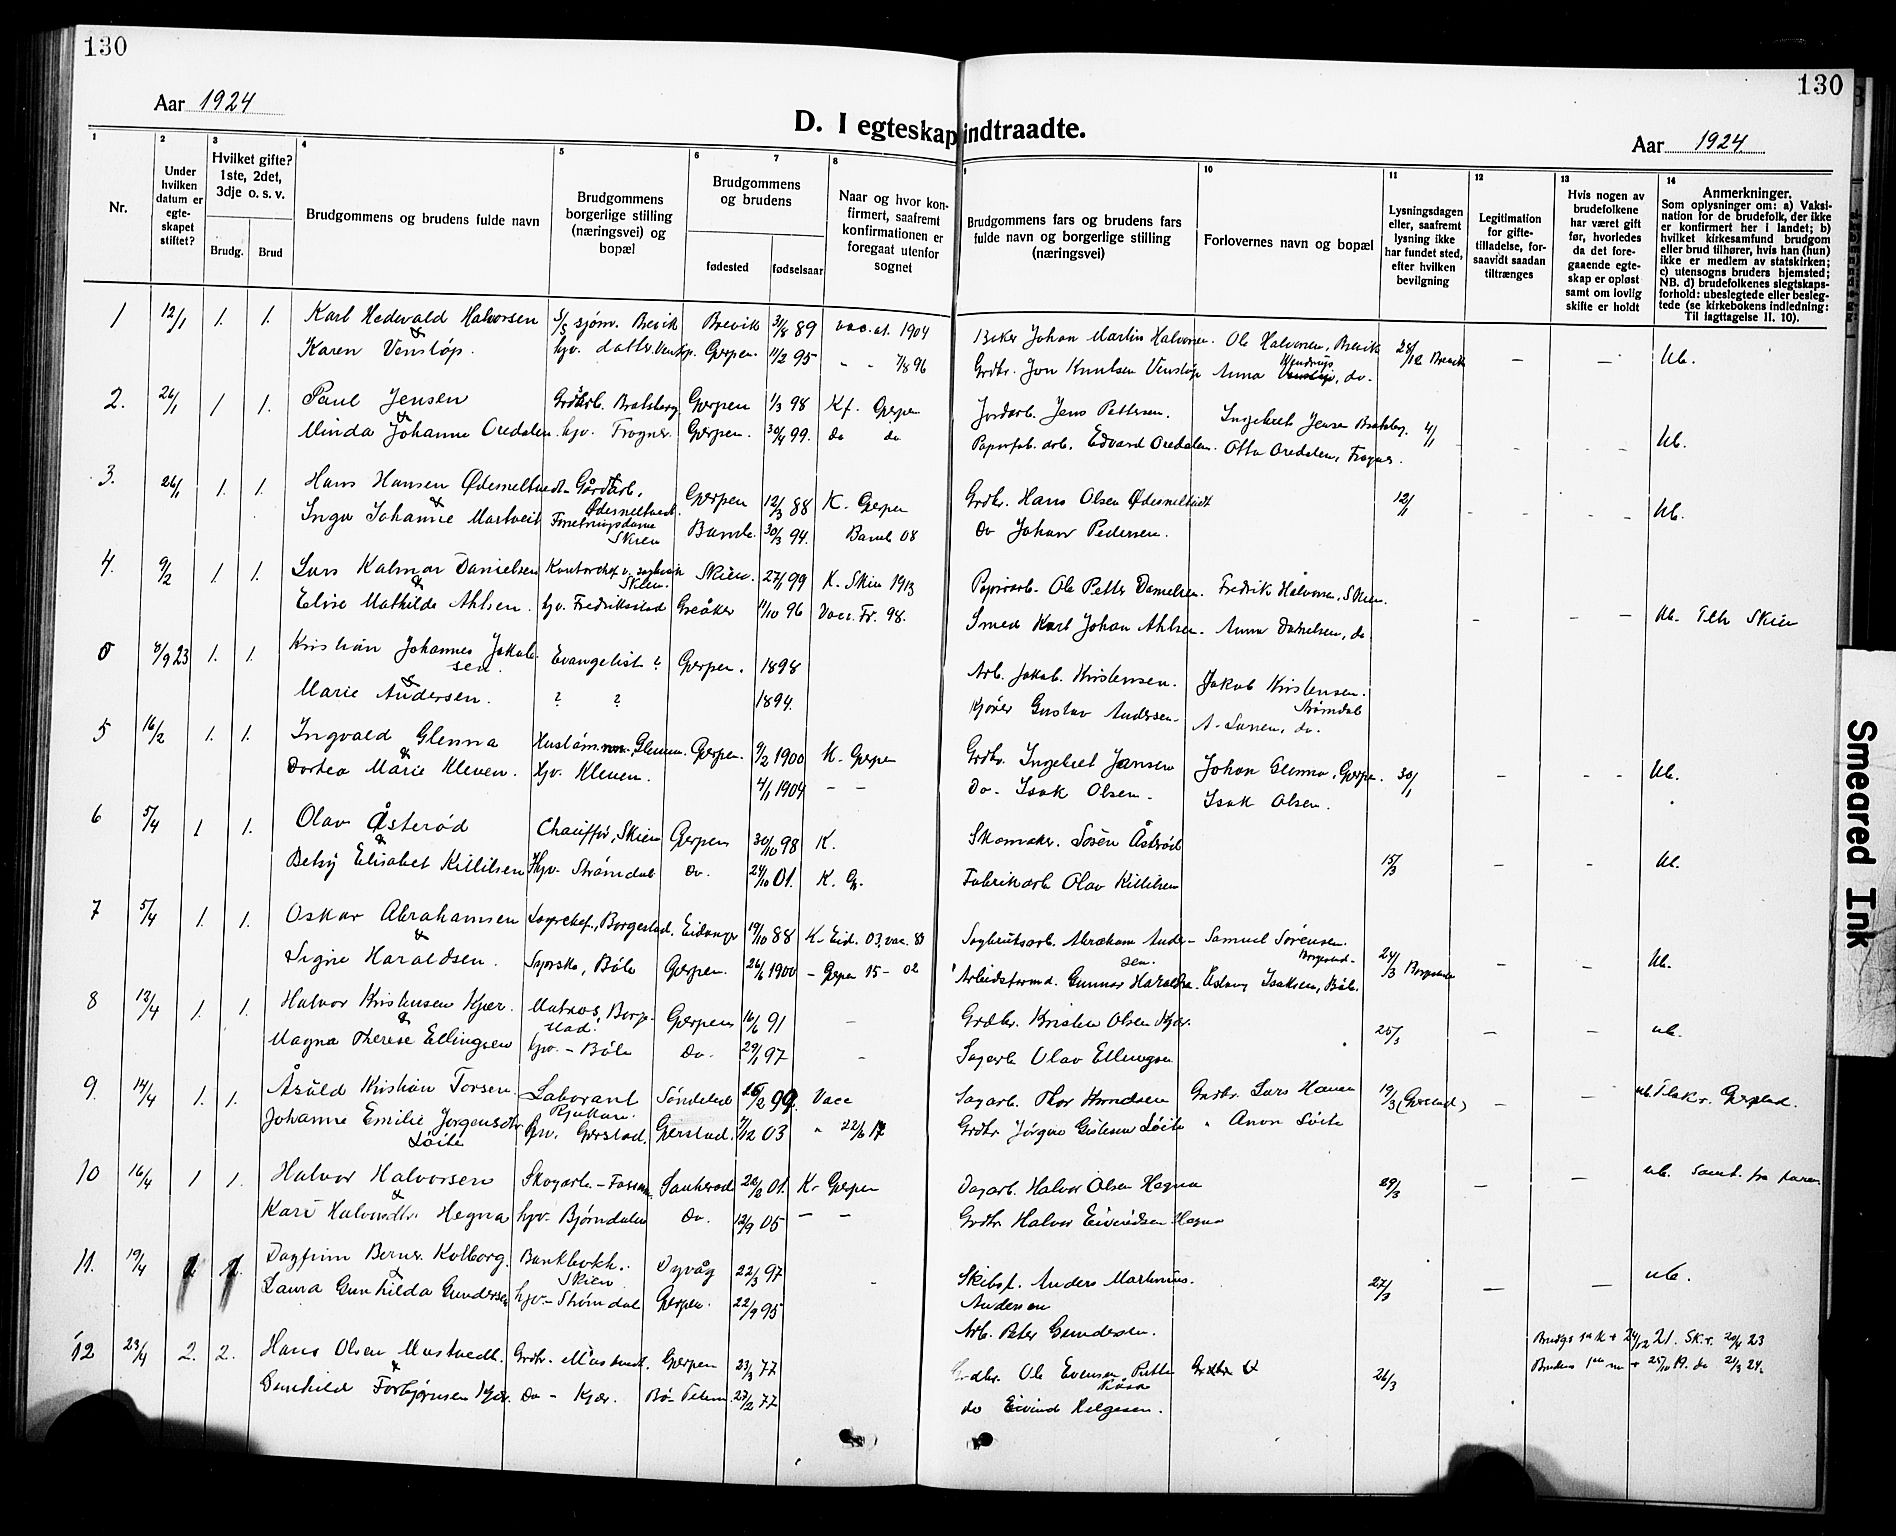 130
130
Aar 1924
D. I egteskap indtraadte.
Aar 1924
1
Nr.
2
Under hvilken datum er egte-skapet stiftet?
3
Hvilket gifte? 1ste, 2det, 3dje o. s. v.
Brudg.
Brud
4
Brudgommens og brudens fulde navn
5
Brudgommens borgerlige stilling (næringsvei) og bopæl
6
7
Brudgommens og brudens
fødested
fødselsaar
8
Naar og hvor kon-firmert, saafremt konfirmationen er foregaat utenfor sognet
Brudgommens fars og brudens fars fulde navn og borgerlige stilling (næringsvei)
10
Forlovernes navn og bopæl
11
Lysningsdagen eller, saafremt lysning ikke har fundet sted, efter hvilken bevilgning
12
Legitimation for gifte-tilladelse, for-saavidt saadan tiltrænges
13
Hvis nogen av brudefolkene har været gift før, hvorledes da det fore-gaaende egte-skap er opløst samt om lovlig skifte er holdt
14
Anmerkninger.
Som oplysninger om: a) Vaksi-nation for de brudefolk, der ikke er konfirmert her i landet; b) hvilket kirkesamfund brudgom eller brud tilhører, hvis han (hun) ikke er medlem av statskirken; c) utensogns bruders hjemsted; NB. d) brudefolkenes slegtskaps-forhold: ubeslegtede eller besleg-tede (se kirkebokens indledning: Til iagttagelse II. 10).
1 12/1 1. 1. Karl Hedevald Halvorsen S/S sjøm. Brevik Brevik 31/8 89 vac. at. 1904 Johan Martin Halvorsen. Ole Halvorsen, Brevik 28/12 Brevik — — Ub.
& Karen Venstøp. hjv. datter Venstøp. Gjerpen. 11/2 95 - - 7/8 96 Grdbr. Jon Knutsen Venstøp Anna Venstøp, do.
2. 26/1 1 1. Paul Jensen Bratsberg Gjerpen 1/3 98 Kf. Gjerpen Jordarb. Jens Pettersen. Ingebret Jensen Bratsberg. 4/1 - - Ub.
& Minda Johanne Oredalen. hjv. Frogner. Gjerpen. 30/4 99. do do Papirfab. arb. Edvard Oredalen. Otto Oredalen, Frogner.
3. 26/1 1. 1. Hans Hansen Ødesneltvedt Gårdarb. Ødesneltvedt. Gjerpen 12/3 88 K. Gjerpen Grdbr. Hans Olsen Ødesneltvedt 12/1 - - - Ub.
& Inga Johanne Mastveit Skien Bamle. 30/3 94. Bamle 08 Do Johan Pedersen.
4. 9/2 1 1. Lars Kalmar Danielsen Skien. Skien. 27/1 99 K. Skien 1913 Ole Petter Danielsen. Fredrik Halvorsen, Skien. - - Ub. Skien
& Elise Mathilde Ahlsen. hjv. Fredrikstad Greåker 11/10 96 Vacc. Fr. 98. Smed Karl Johan Ahlsen. Anna Danielsen, do
0 8/9 23 1. 1. Kristian Johannes Jakobsen Evangelist ? Gjerpen. 1898 Arb. Jakob Kristensen. Jakob Kristensen. Strømdal
& Marie Andersen. ? ? 1894. Kjører Gustav Andersen. do.
5 16/2 1. 1. Ingvald Glenna Glenna. Gjerpen. 9/2 1900 K. Gjerpen Grdbr. Ingebret Jansen Johan Glenna, Gjerpen. 30/1 - - - Ub.
& Dortea Marie Kleven. hjv. Kleven. 4/1 1904 — — Do. Isak Olsen. Isak Olsen.
6 5/4 1 1. Olav Åsterød Chauffør, Skien Gjerpen 30/10 98 K. Skomaker. Åsterød 15/3 - - Ub.
& Betsy Elisabet Killilsen Hjv. Strømdal Do. 24/10 01. K. G. Fabrikarb Olav Killilsen
7 5/4 1. 1. Oskar Abrahamsen Borgestad. Eidanger 19/10 88 K. Eid. 03, vac. Sagbruksarb. Abraham Andersen. Samuel Sørensen. Borgestad. 23/3 Borgestad - - Ub.
& Signe Haraldsen. Syerske, Bøle Gjerpen. 26/6 1900 - Gjerpen 15 - 02 Arbeidsformd. Gunnar Haraldsen. Aslaug Isaksen, Bøle.
8 13/4 1. 1. Halvor Kristensen Kjær. Matros, Borgestad. Gjerpen 16/6 91 - Grdbr. Kristen Olsen Kjær. 25/3 - - ub.
& Magna Therese Ellingsen hjv. - Bøle Do. 29/1 97 - Sagarb Olav Ellingsen
9. 14/4 1. 1. Åsuld Kristian Torsen Laborant Rjukan. Søndeled 26/2 99. Vacc Sagarb. Thor Grdbr. Lars Hauen 19/3 (Gjerstad) - - ub. Gjerstad.
Johanne Emilie Jørgensdtr Løite hjv. Gjerstad. Gjerstad. 7/12 03 " 22/6 17 Grdbr Jørgen Løite " Anon Løite
10 16/4 1 1. Halvor Halvorsen Skogarb. - Sauherad 20/2 01. K. Gjerpen Dagarb. Halvor Olsen Hegna 29/3 - - ub.
& Kari Halvorsdtr. Hegna hjv. Bjørndalen Do. 12/9 05 — — Grdbr Halvor Eivindsen Hegna
11. 19/4 1. 1. Dagfinn Berner Kolborg. Bankbokh. Skien Dypvåg 22/3 97 - Skibsf. Anders Martinius. Andersen 27/3 - - ub.
& Laura Gunhilda Gundersen hjv. - Strømdal Gjerpen. 22/9 95 Arb. Peter Gundersen.
12 23/4 2. 2. Hans Olsen Mustvedt. Grdbr. - Mustvedt. Gjerpen 23/3 77 Grdbr. Ole Evensen Grdbr 26/3 Brudgs 1ste + 24/12 21. Sk.r. 20/4 23
& Gunhild Torbjørnsen Kjær. Do - Kjær. Bø - Telem. 27/2 77 do Eivind Helgesen. Brudens 1ste m + 25/10 19. do 21/3 24.
Smeared Ink